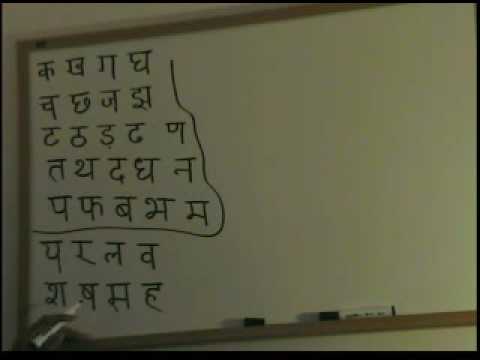 क ख ग घ
च छ ज झ
ट ठ ड़ ढ ण
त थ द घ न
प फ ब भ म
य र ल व
श ष स ह